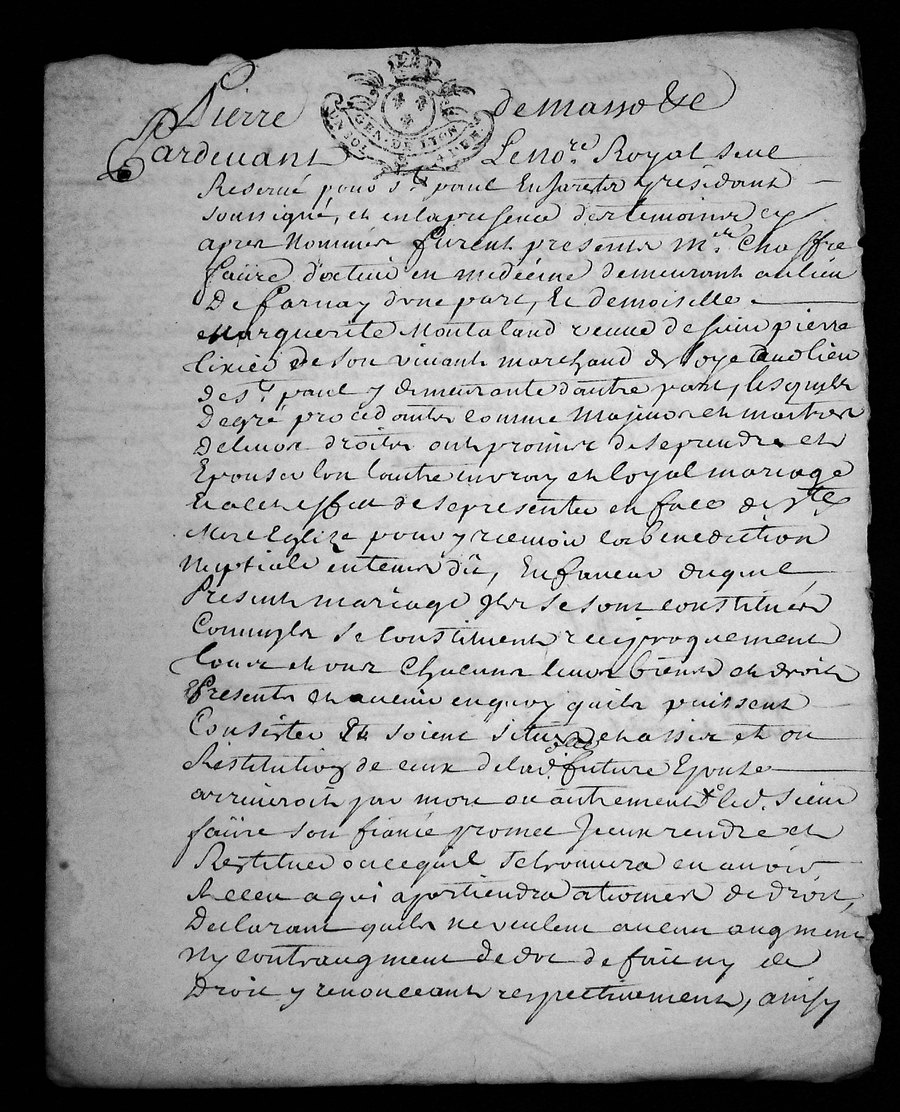 Pierre demasso &c
GEN. DE LION
Pardevant Le no.re Royal seul
Reservé pour st paul En Jarests y residant
soussigné, et en la presence des temoins cy
apres Nommés furent presents m.re Chaffre
faüre docteur en medecine demeurant au lieu
De farnay d'one part, Et demoiselle
Marguerite Montaland veuve de feu pierre
de son vivant marchand de soye au dlieu
de st paul y demeurante dautre part, lesquels
De gré procedants comme majeurs et maitres
De leurs droits ont promis de se prendre et
Epouser lun lautre en vray et loyal mariage
Et a cet effet de se presenter en face de ste
Mere Eglise pour y recevoir la benediction
Nuptiale, En faveur duquel
Present mariage Ils se sont constitués
Comme ils se constituent reciproquement
tous et uns chacuns leurs biens et droits
Presents et avenir en quoy quils puissent
Consister Et soient situés et assis et ou
Restitution de ceux de lad. future Epouse
arriveroit par mort ou autrement led. sieur
faüre son fiancé promet Iceux rendre et
Restituer ou ce quil se trouvera en avoir
Receu a qui apartiendra de droit,
Declarant quils ne veulent aucun augment
Ny contraugment de dot de faict ny de
Droit y renonceant respectivement, ainsy